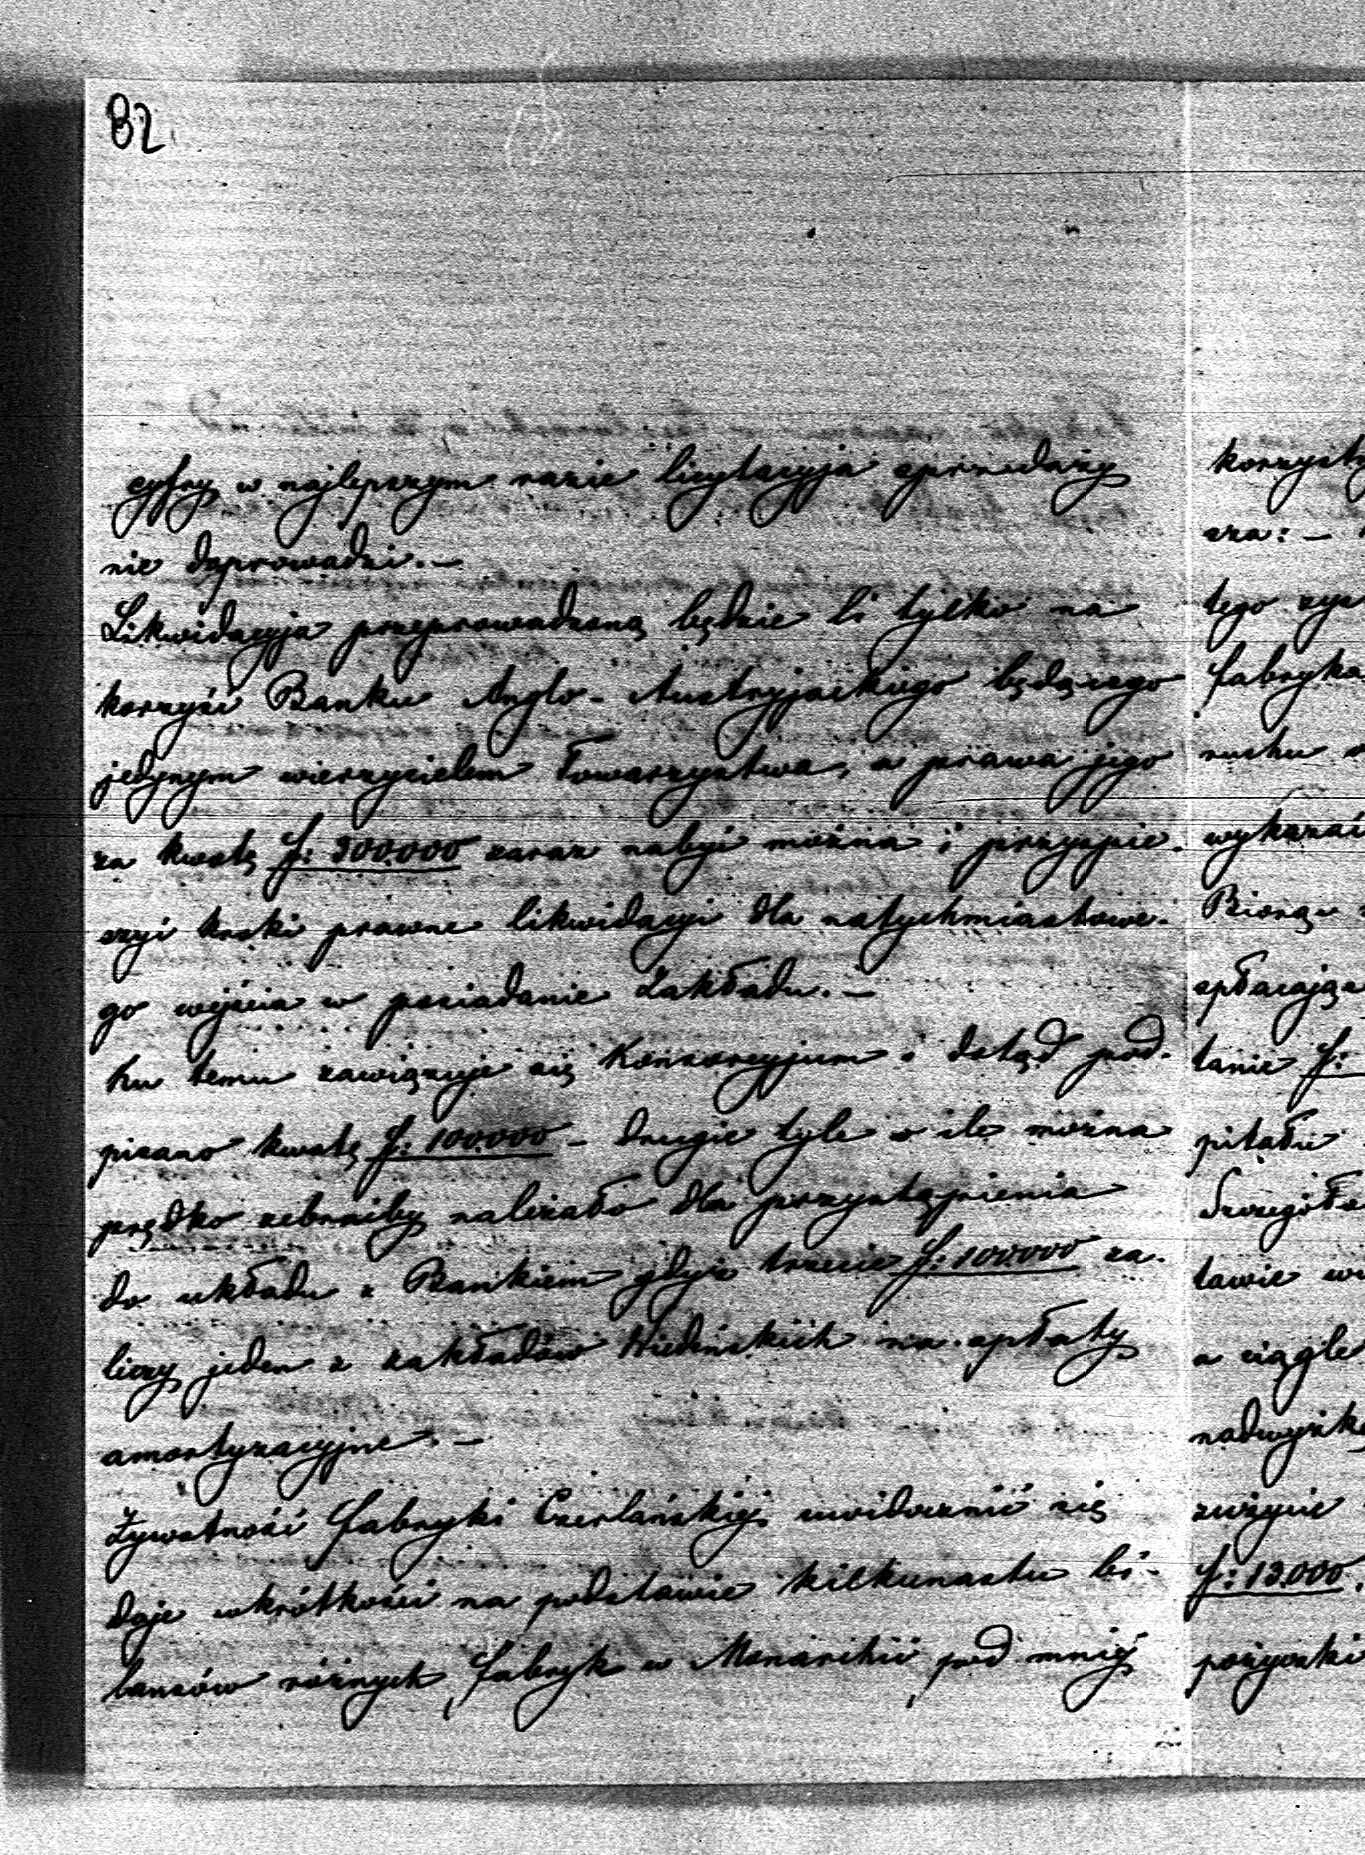 82
cyfry w najlepszym razie licytacyja sprzedaży
nie doprowadzi. —
Likwidacyja przeprowadzoną będzie li tylko na
korzyść Banku Anglo-Austryjackiego będącego
jedynym wierzycielem Towarzystwa, a prawa jego
za kwotę f: 300.000 zaraz nabyć można i przyspie-
szyć kroki prawne likwidacyi dla natychmiastowe-
go wejścia w posiadanie Zakładu. —
Ku temu zawiązuje się Konsorcyjum i dotąd pod-
pisano kwotę f: 100.000 – drugie tyle o ile można
prędko zebraćby należało dla przystąpienia
do układu z Bankiem gdyż trzecie f: 100.000 za-
liczy jeden z zakładów Wiedeńskich na spłaty
amortyzacyjne. —
Żywotność fabryki Czerlańskiéj uwidocznić się
daje wkrótkości na podstawie kilkunastu bi-
lansów różnych fabryk w Monarchii pod mniéj
korzyst
sza: –
tego
fabryka
ruchu
wykazać
Biorąc
spłacając
tanie f:
pitału
Szczegóło
tawie
a ciągle
nadwyżk
zużycie
f: 13.000.
pożyczki